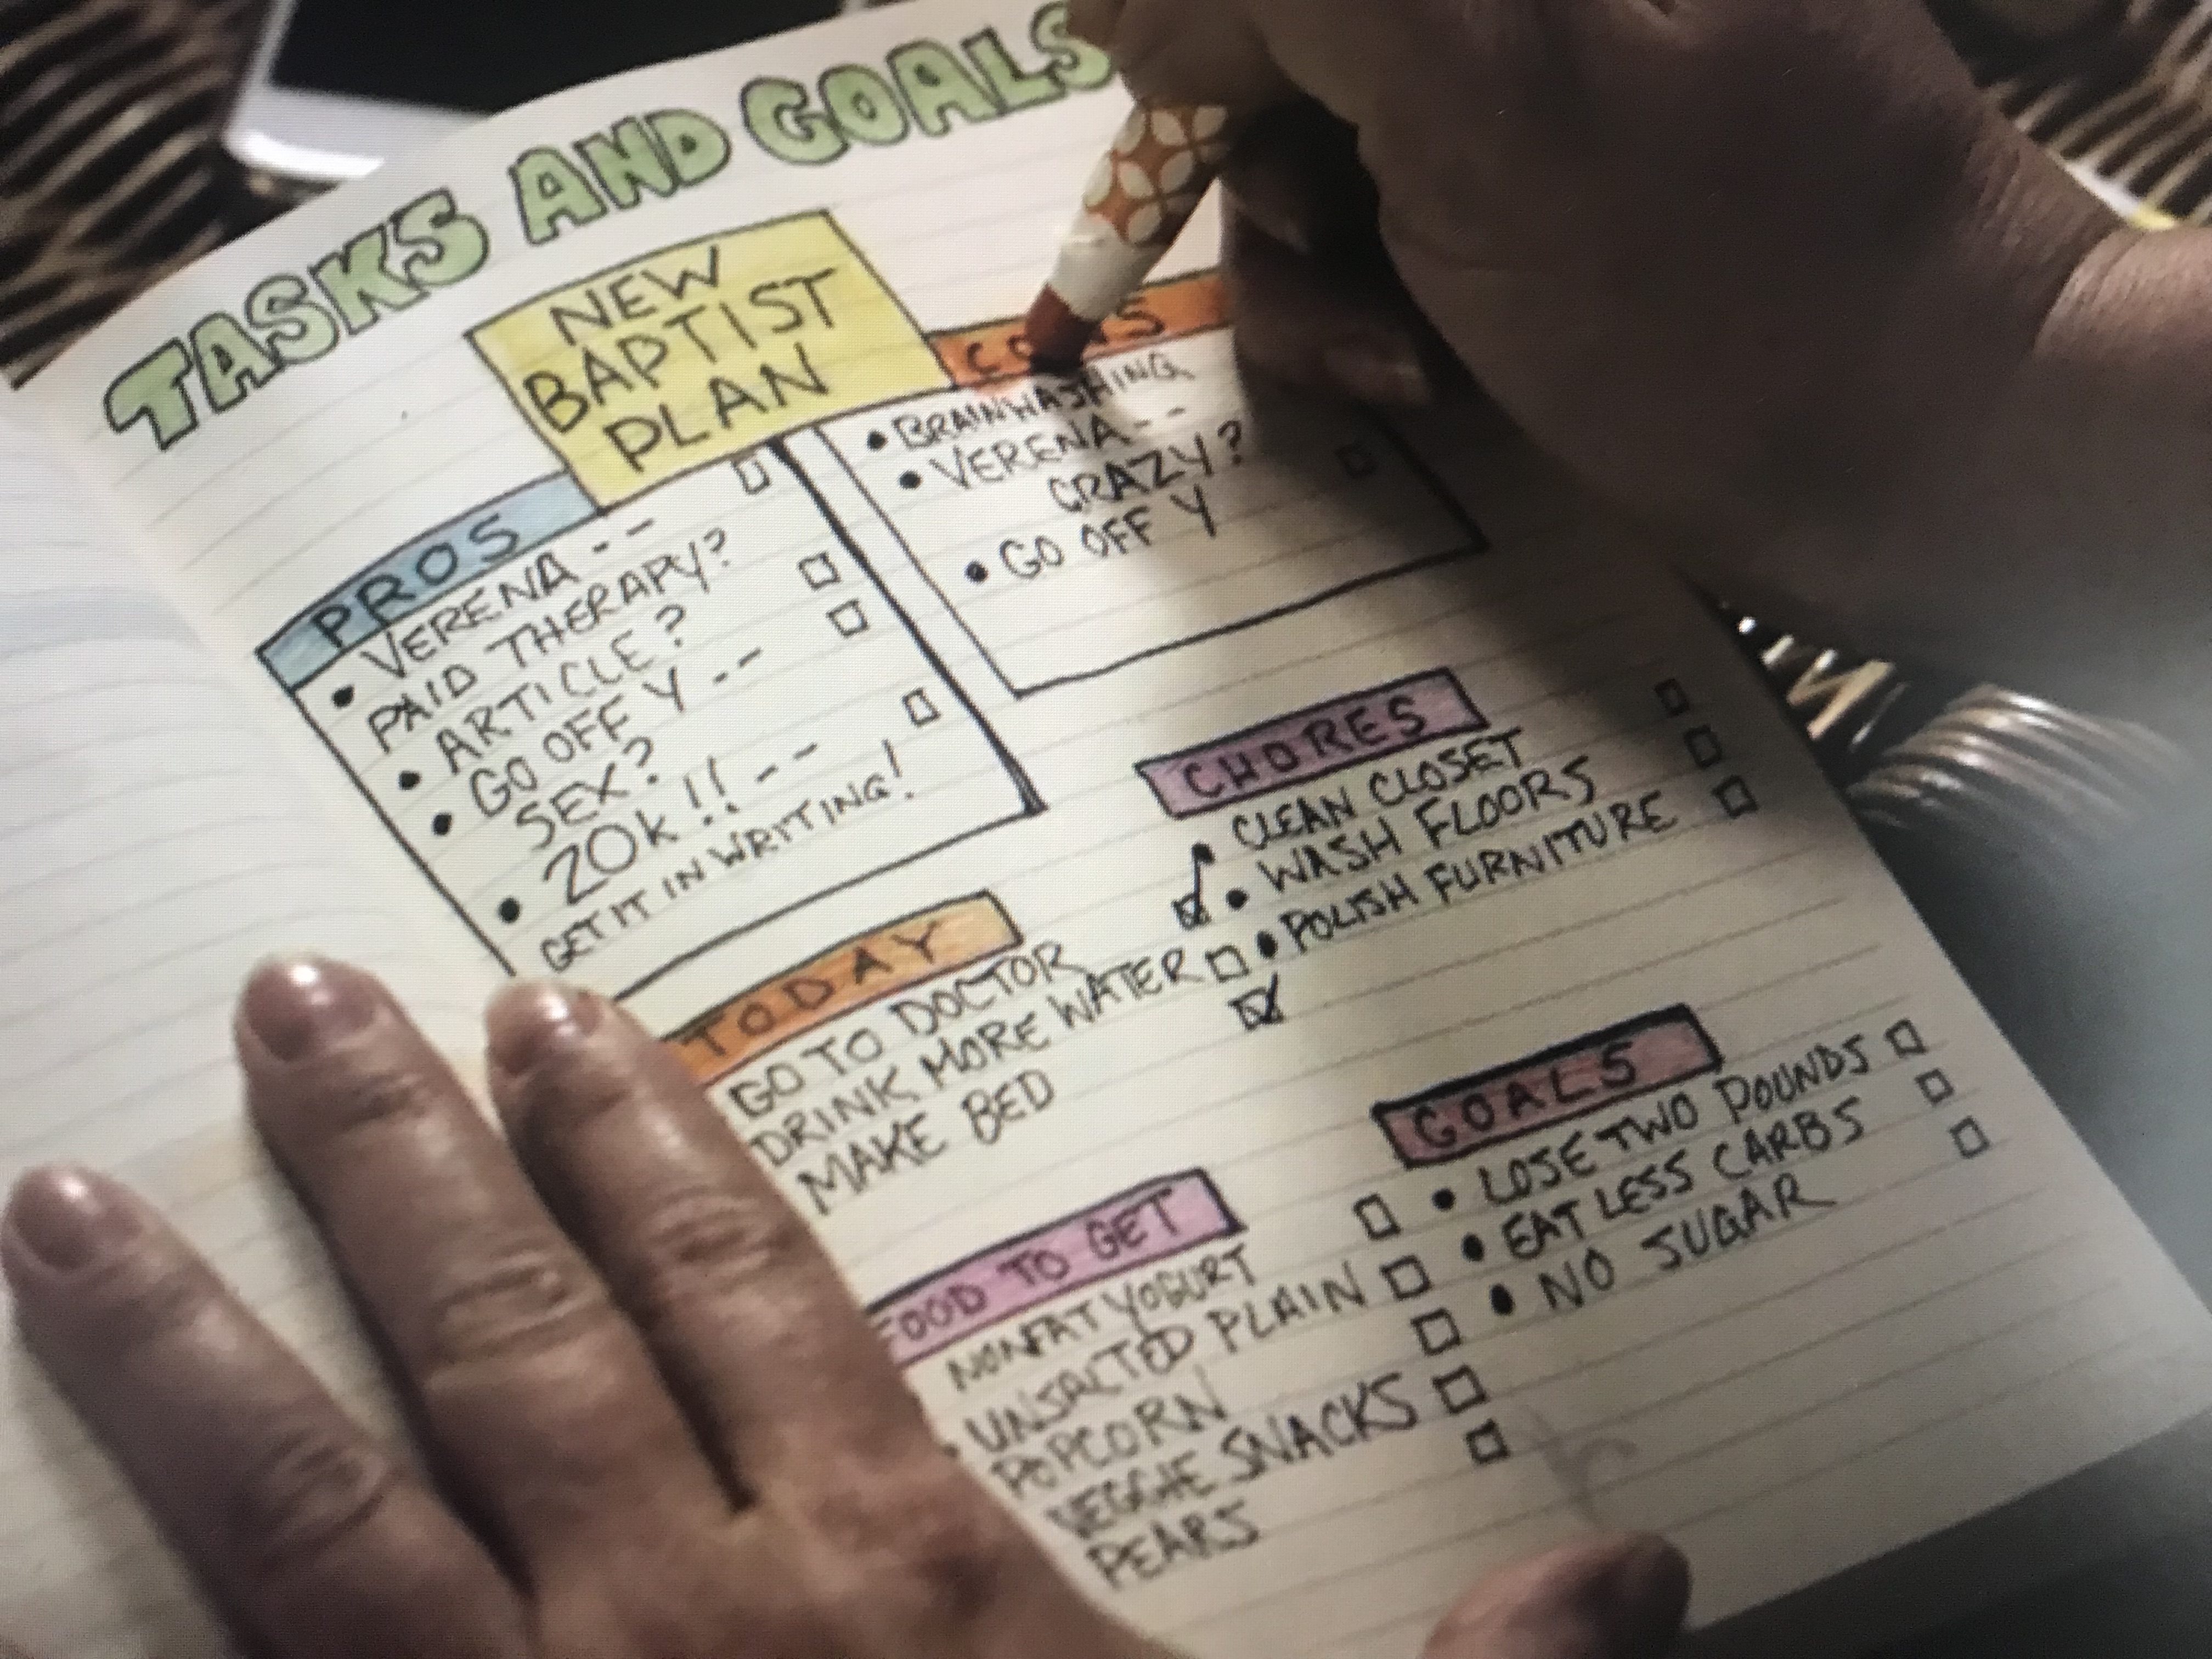 TASKS AND GOALS
NEW
BAPTIST
PLAN
PROS
VERENA--
PAID THERAPY?
ARTICLE?
GO OFF Y--
SEX?
20K!!--
GET IT IN WRITING!
CONS
BRAINWASHING
VERENA--
CRAZY?
GO OFF Y
CHORES
CLEAN CLOSET
WASH FLOORS
POLISH FURNITURE
TODAY
GO TO DOCTOR
DRINK MORE WATER
MAKE BED
GOALS
LOSE TWO POUNDS
EAT LESS CARBS
NO SUGAR
FOOD TO GET
NONFAT YOGURT
UNSALTED PLAIN
POPCORN
VEGGIE SNACKS
PEARS